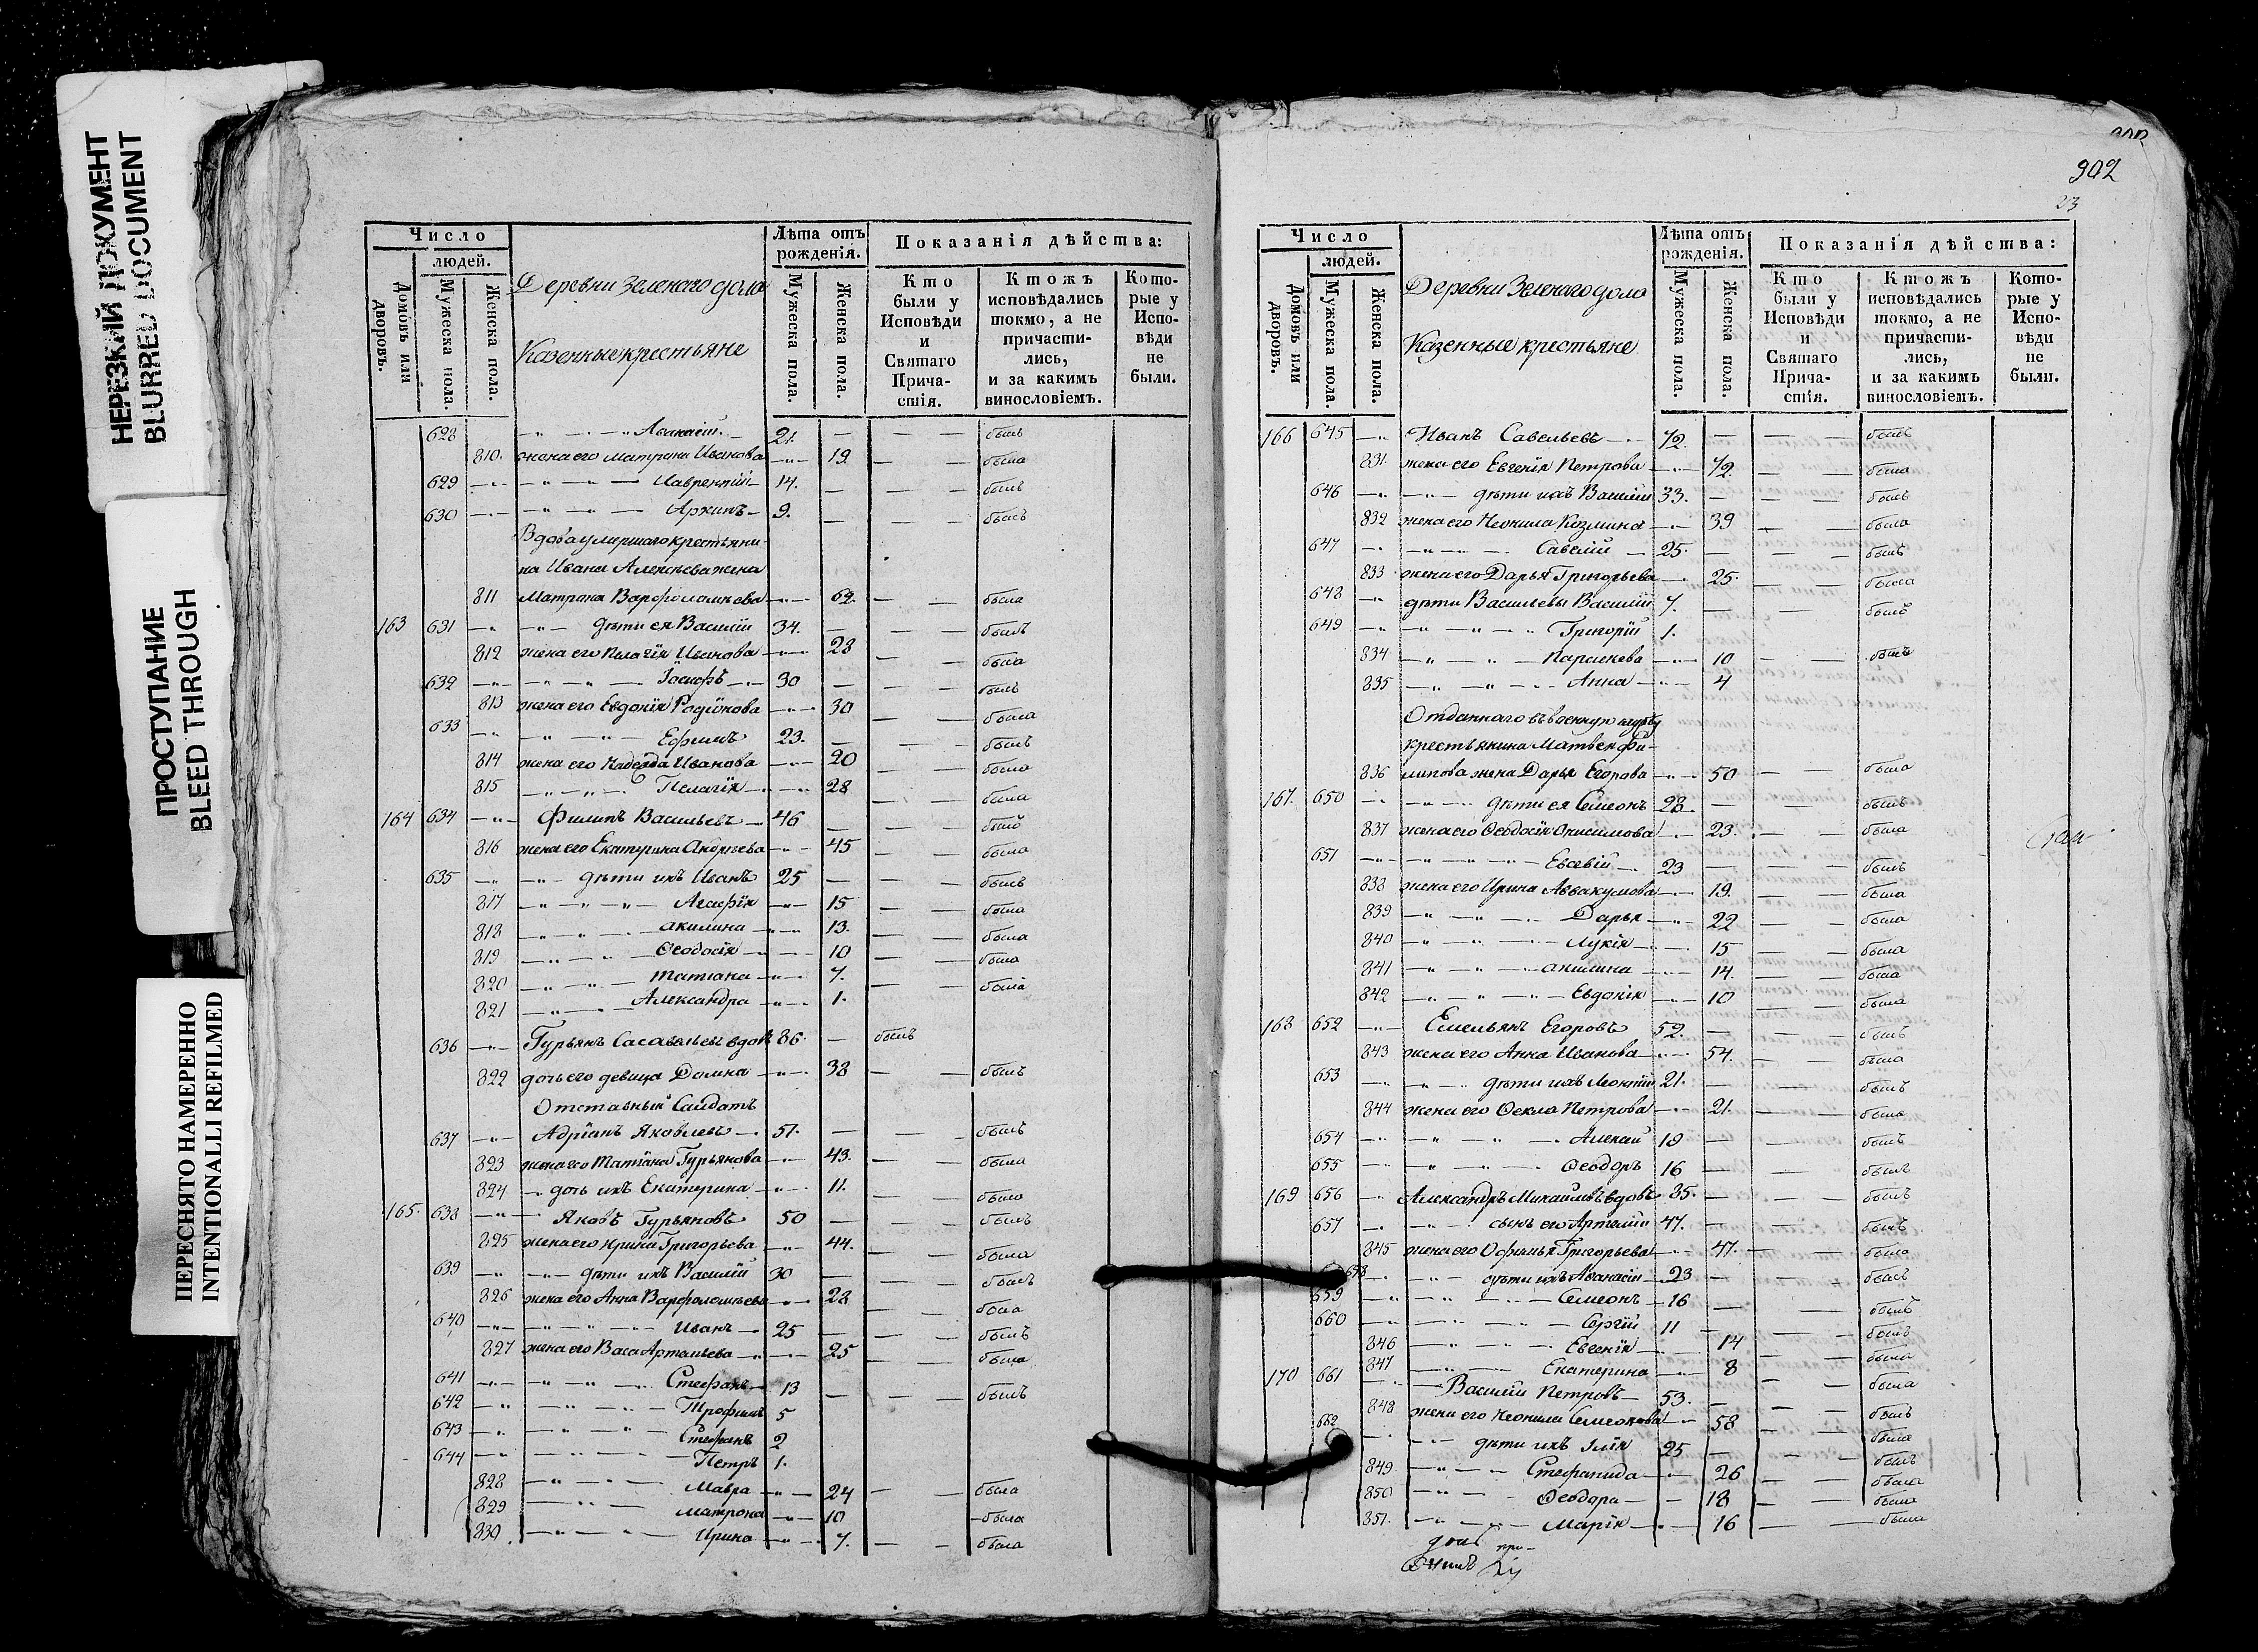 НЕРЕЗКИЙ ДОКУМЕНТ
BLURRED DOCUMENT
ПРОСТУПАНИЕ
BLEED THROUGH
ПЕРЕСНЯТО НАМЕРЕННО
INTENTIONALLI REFILMED
Число
людей.
Домовъ или дворовъ.
Мужеска пола.
Женска пола.
Деревни Зеленаго дола
Казенные крестьяне
Лѣта отъ рожденія.
Мужеска пола.
Женска пола.
Показанія дѣйства:
Кто были у Исповѣди и Святаго Причастія.
Ктожъ исповѣдались токмо, а не причастились, и за какимъ винословіемъ.
Которые у Исповѣди не были.
628 Аѳанасій 21. былъ
810. жена его Матрона Иванова 19 была
629 Лаврентій 14. былъ
630 Архипъ 9. былъ
Вдова умершаго крестьяни-
на Ивана Алексѣева жена
811 Матрона Варфоломѣева 62. была
163 631 дѣти ея Василій 34. былъ
812 жена его Пелагія Иванова 28 была
632 Іосифъ 30 былъ
813 жена его Евдокія Родіонова 30 была
633 Ефимъ 23. былъ
814 жена его Надежда Иванова 20 была
815 Пелагія 28 была
164 634 Филипъ Васильевъ 46 былъ
816 жена его Екатерина Андреева 45 была
635 дѣти ихъ Иванъ 25 былъ
817 Агафія 15 была
818 акилина 13. была
819 Ѳеодосія 10 была
820 татіана 7. была
821 Александра 1.
636 Гурьянъ вдовъ 86. былъ
822 дочь его девица Домна 38 былъ
Отставный Салдатъ
637 Адріанъ Яковлевъ 51. былъ
823 жена его Татіана Гурьянова 43. была
824 дочь ихъ Екатерина 11. была
165. 638 Яковъ Гурьяновъ 50 былъ
825 жена его Ирина Григорьева 44. была
639 дѣти ихъ Василій 30 былъ
826 жена его Анна Варфоломѣева 28 была
640 Иванъ 25 былъ
827 жена его Васа Артемьева 25 была
641 Стефанъ 13 былъ
642 Трофимъ 5
643 Стефанъ 2
644 Петръ 1.
828 Мавра 24 была
829 Матрона 10 была
830. Ирина 7. была
902
23
Число
людей.
Домовъ или дворовъ.
Мужеска пола.
Женска пола.
Деревни Зеленаго дола
Казенные крестьяне
Лѣта отъ рожденія.
Мужеска пола.
Женска пола.
Показанія дѣйства:
Кто были у Исповѣди и Святаго Причастія.
Ктожъ исповѣдались токмо, а не причастились, и за какимъ винословіемъ.
Которые у Исповѣди не были.
166 645 Иванъ Савельевъ 72. былъ
831. жена его Евгенія Петрова 72. была
646 дѣти ихъ Василій 33. былъ
832 жена его Неонила Козмина 39 была
647 Савелій 25. былъ
833 жена его Дарья Григорьева 25. была
648 дѣти Васильевы Василій 7. былъ
649 Григорій 1.
834 Параскева 10 былъ
835 Анна 4
Отданнаго въ военную службу
крестьянина Матвея Фи-
836 липова жена Дарья Егорова 50 была
167. 650 дѣти ея Симеонъ 28. былъ
837 жена его Ѳеодосія Онисимова 23. была
651 Евсевій 23 былъ
838 жена его Ирина Аввакумова 19. была
839 Дарья 22 была
840 Лукія 15 была
841 акилина 14. была
842 Евдокія 10 была
168 652 Емельянъ Егоровъ 52. былъ
843 жена его Анна Иванова 54. была
653 дѣти ихъ Леонтій 21. былъ
844 жена его Ѳекла Петрова 21. была
654 Алексій 19 былъ
655 Ѳеодоръ 16 былъ
169 656 Александръ Михайловъ вдовъ 85. былъ
657 сынъ его Артемій 47. былъ
845 жена его Офимья Григорьева 47. была
658 дѣти ихъ Аѳанасій 23 былъ
659 Симеонъ 16 былъ
660 Сергій 11 былъ
846 Евгенія 14 была
847 Екатерина 8 была
170 661 Василій Петровъ 53. былъ
848 жена его Неонила Симеонова 58 была
662 дѣти ихъ Илія 25 былъ
849 Стефанида 26 была
850 Ѳеодора 18 была
851. Марія 16 была